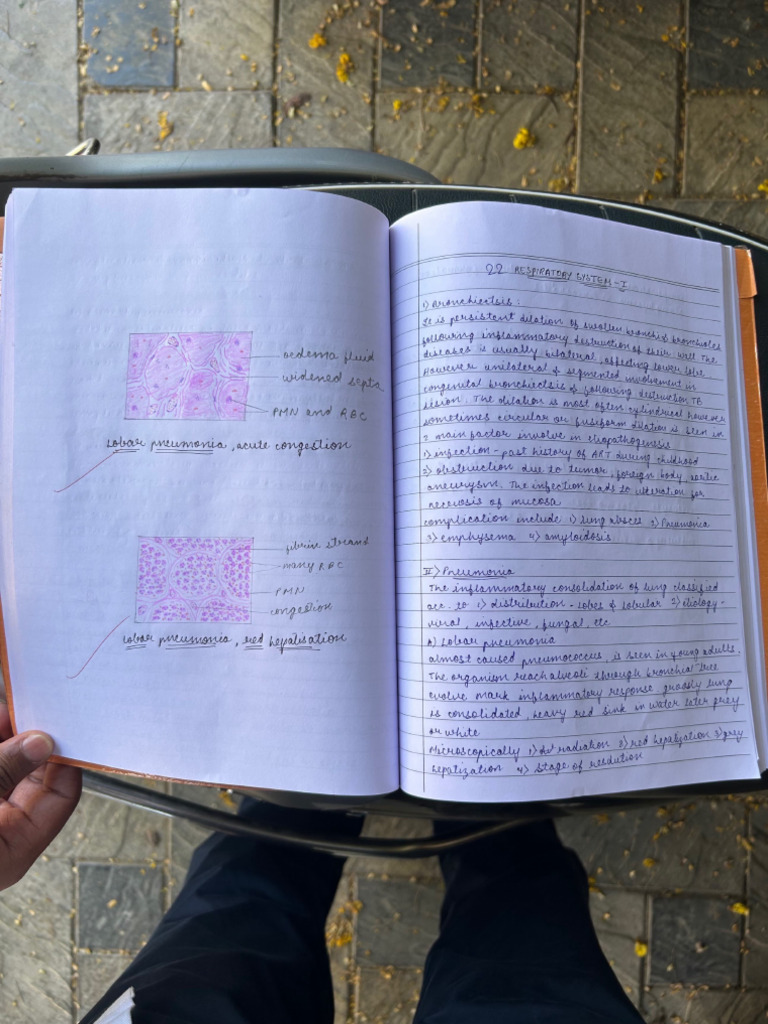 oedema fluid
widened septa
PMN and RBC
Lobar pneumonia, acute congestion
fibrin strand
many RBC
PMN
congestion
Lobar pneumonia, red hepatisation
22 RESPIRATORY SYSTEM-I
1) Bronchiectsis:
It is persistent dilation of swollen bronchi & bronchioles
following inflammatory destruction of their wall The
diseases is usually bilateral, affecting lower lobe
However unilateral & segmented involvement in
congenital bronchiectosis & following destruction TB
lesion. The dilation is most often cylindrical however
sometimes circular or fusiform dilation is seen in
2 main factor involve in etiopathogenesis
1) infection - past history of ART during childhood
2) obstruction due to tumor, foreign body, aortic
aneurysm. The infection leads to ulteration for
necrosis of mucosa
complication include 1) lung absces 2) Pneumonia
3) emphysema 4) amyloidosis
II) Pneumonia
The inflammatory consolidation of lung classified
acc. to 1) distribution - lobes & lobular 2) etiology-
viral, infective, fungal, etc
A) Lobar pneumonia
almost caused pneumococcus, is seen in young adults.
The organism reach alveoli through bronchial tree
evolve mark inflammatory response gradsly lung
is consolidated, heavy red sink in water later grey
or white
Microscopically 1) radiation 2) red hepatization 3) grey
hepatization 4) stage of resolution